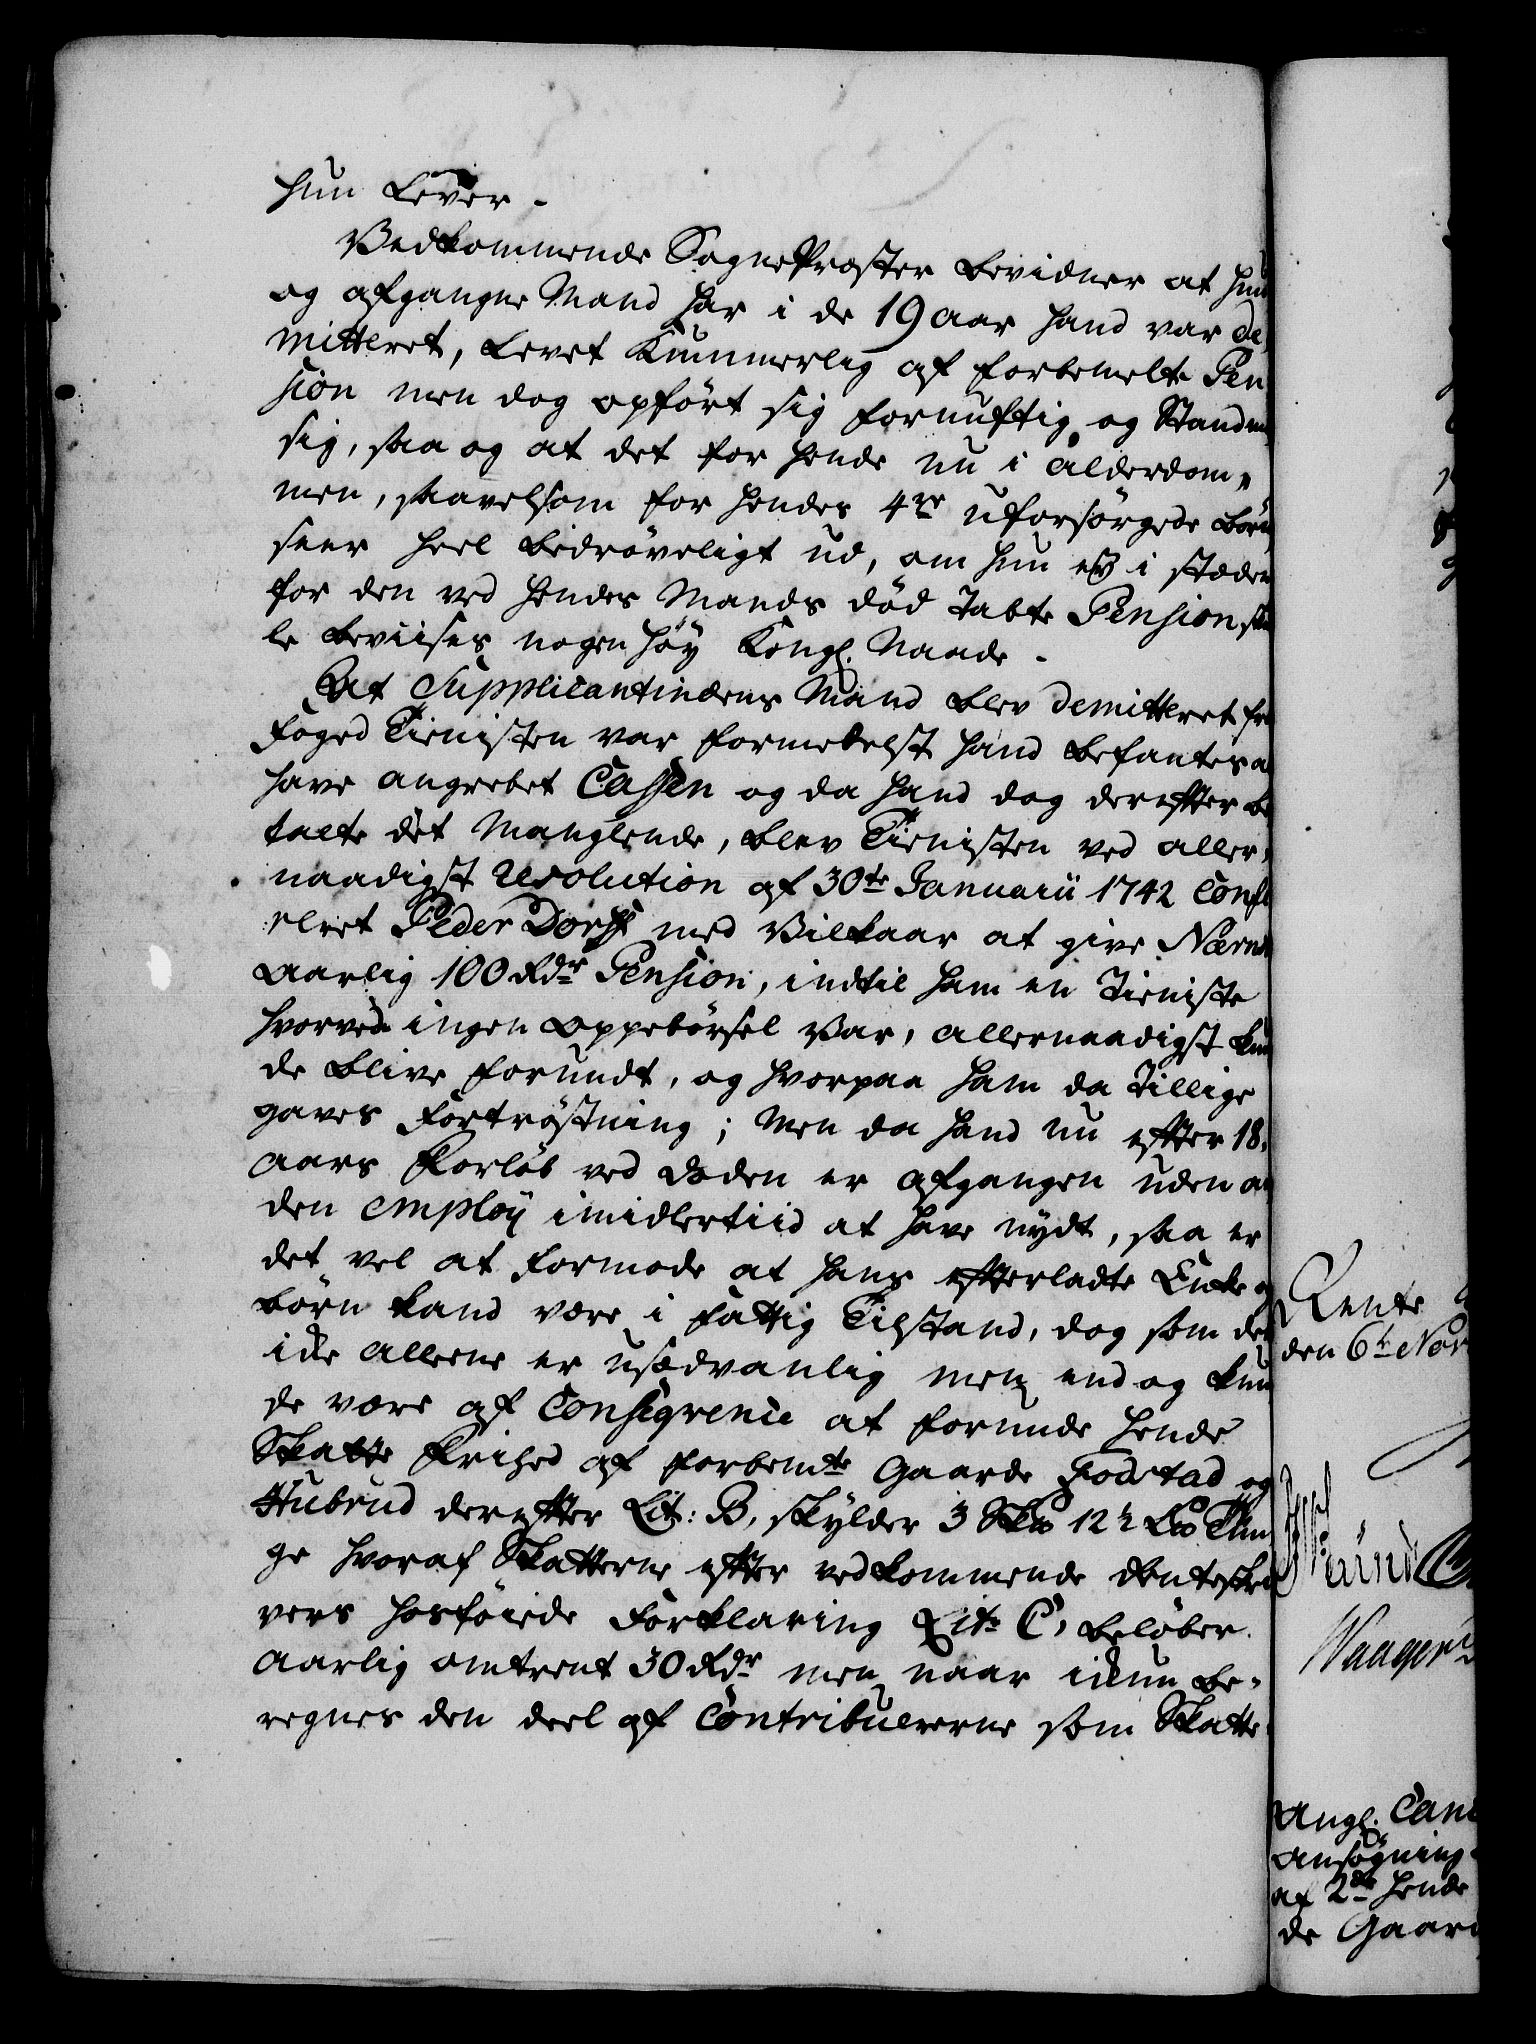 hun Lever.
Vedkommende Sogne Præster bevidner at hun
og afgangne Mand har i de 19 aar hand var de,
mitteret, Levet Kummerlig af forbemelte Pen
sion men dog opført sig fornuftig og Standm
sig, saa og at det for hende nu i Alderdom,
men, saavelsom for hendes 4re uforsørgede børn,
seer heel bedrøveligt ud, om hun ey i stæden
for den ved hendes Mands død tabte Pension skul
le beviises nogen høy Kongl. Naade.
At Supplicantindens Mand blev demitteret fra
Foged Tienisten var formedelst hand befantes a
have angrebet Cassen og da hand dog derefter be
talte det Manglende, blev Tienisten ved aller,
naadigst Resolution af 30te Januarii 1742 Conf
eret Peder Dorph med Vilkaar at give Nærm
aarlig 100 Rdr Pension, indtil ham en Tieniste
hvorved ingen Oppebørsel var, allernaadigst kun
de blive forundt, og hvorpaa ham da tillige
gaves Fortrøstning; Men da hand nu efter 18.
aars Forløb ved døden er afgangen uden a
den employ imidlertiid at have nydt, saa er
det vel at formode at hans efterladte Enke og
børn kand være i fattig Tilstand, dog som det
icke alleene er usædvanlig men end og kun
de være af Conseqvence at forunde hende
Skatte Frihed af forbemte Gaarde Fodstad og
Hubrud derefter Lit: B, skylder 3 Skp 12½ Lp Tun
ge hvoraf Skatterne efter vedkommende Renteskri
vers hosføiede Forklaring Lit. C, beløber
aarlig omtrent 30 Rdr men naar ickun be-
regnes den deel af Contribuererne som Skatte
Rente
den 6te Nov
Waager
Angl. Canc
ansøgning
af 2de hende
de Gaar